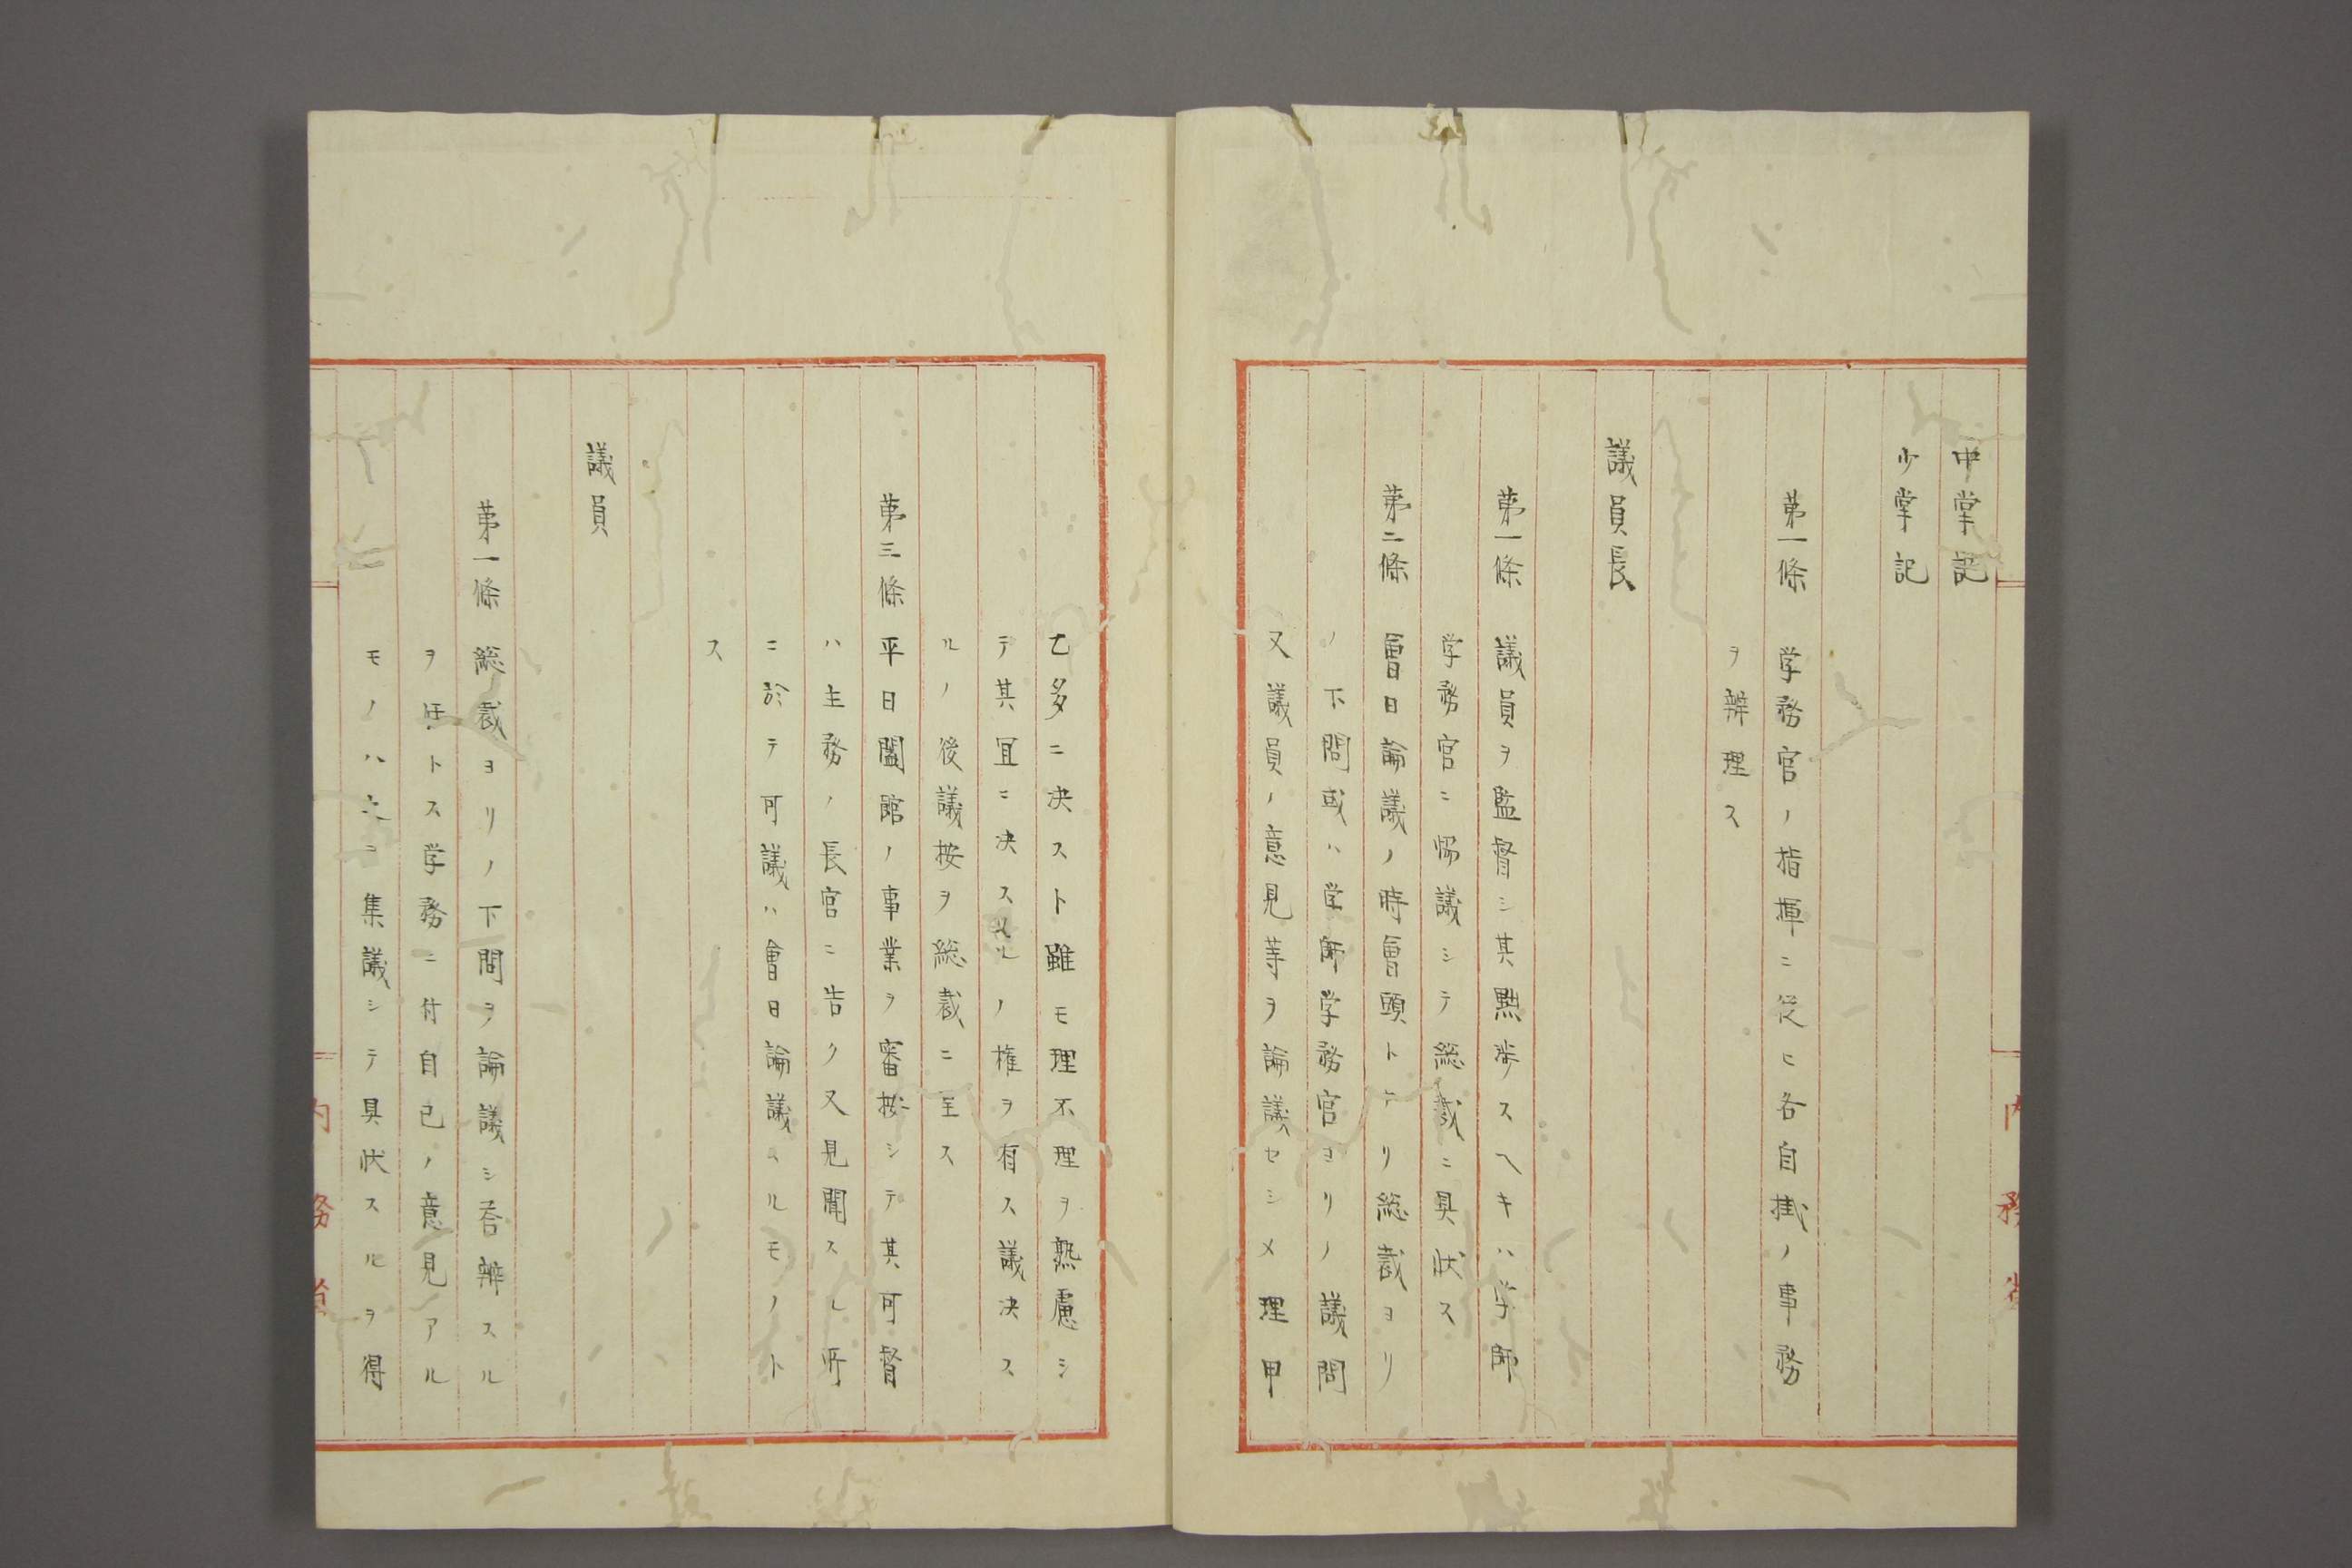 中掌記
少掌記
第一條 学務官ノ指揮ニ従ヒ各自掛ノ事務
ヲ辨理ス
議員長
第一條 議員ヲ監督シ其黜陟スヘキハ学師
学務官ニ協議シテ総裁ニ具状ス
第二條 會日論議ノ時會頭トナリ総裁ヨリ
ノ下問或ハ学師学務官ヨリノ議問
又議員ノ意見等ヲ論議セシメ理甲
乙多ニ决スト雖モ理不理ヲ熟慮シ
テ其冝ニ决スルノ権ヲ有ス議决ス
ルノ後議按ヲ総裁ニ呈ス
第三條 平日闔館ノ事業ヲ審按シテ其可督
ハ主務ノ長官ニ告ク又見聞スル所
ニ於テ可議ハ會日論議スルモノト
ス
議員
第一條 総裁ヨリノ下問ヲ論議シ荅辨スル
ヲ任トス学務ニ付自己ノ意見アル
モノハ之ヲ集議シテ具状スルヲ得
内務省
内務省